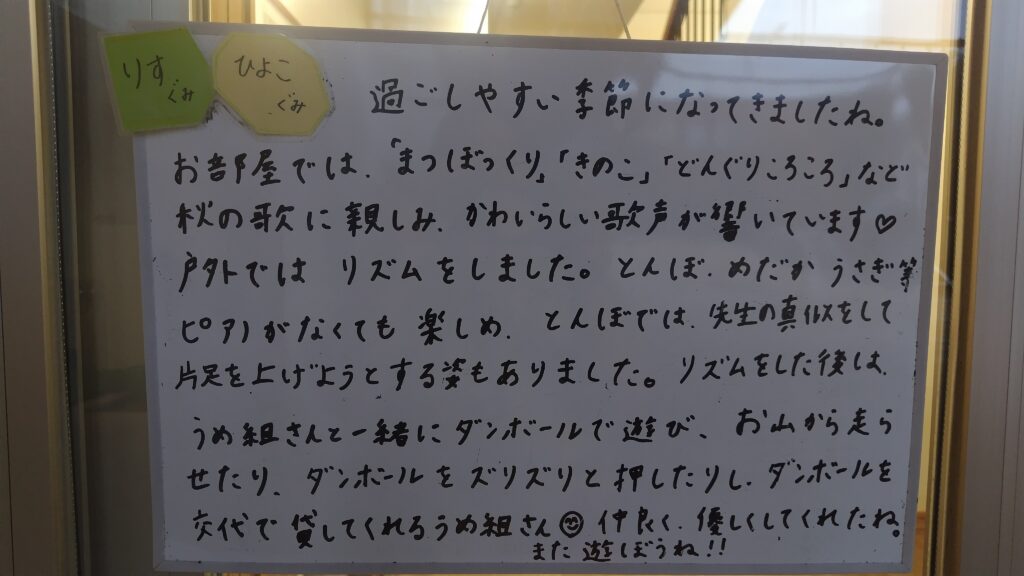 りす
ぐみ
ひよこ
ぐみ
過ごしやすい季節になってきましたね。
お部屋では、「まつぼっくり」「きのこ」「どんぐりころころ」など
秋の歌に親しみ、かわいらしい歌声が響いています♡
戸外では リズムをしました。とんぼ、めだか うさぎ等
ピアノがなくても 楽しめ、とんぼでは、先生の真似をして
片足を上げようとする姿もありました。リズムをした後は、
うめ組さんと一緒にダンボールで遊び、お山から走ら
せたり、ダンボールをズリズリと押したりし、ダンボールを
交代で貸してくれるうめ組さん☺仲良く、優しくしてくれたね。
また遊ぼうね!!